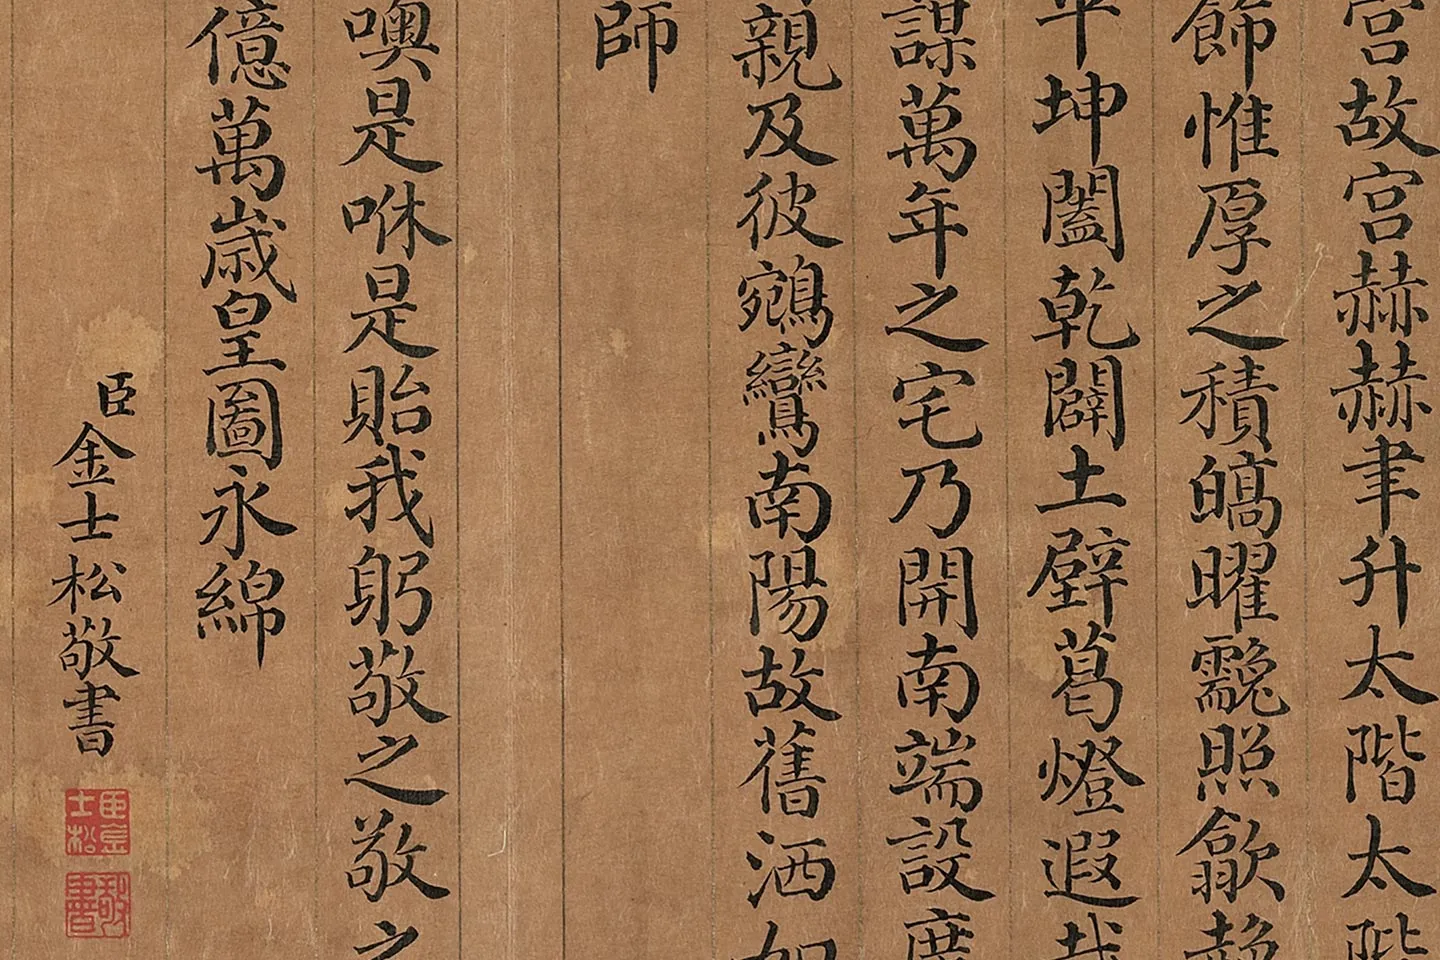 宮故宮赫赫聿升太階太階
飾惟厚之積皜曜照歙
平坤闔乾闢土壁葛燈遐哉
謀萬年之宅乃開南端設庶
親及彼鵷鸞南陽故舊洒如
師
噢是咻是貽我躬敬之敬之
億萬歲皇圖永綿
臣金士松敬書
臣金士松
敬書